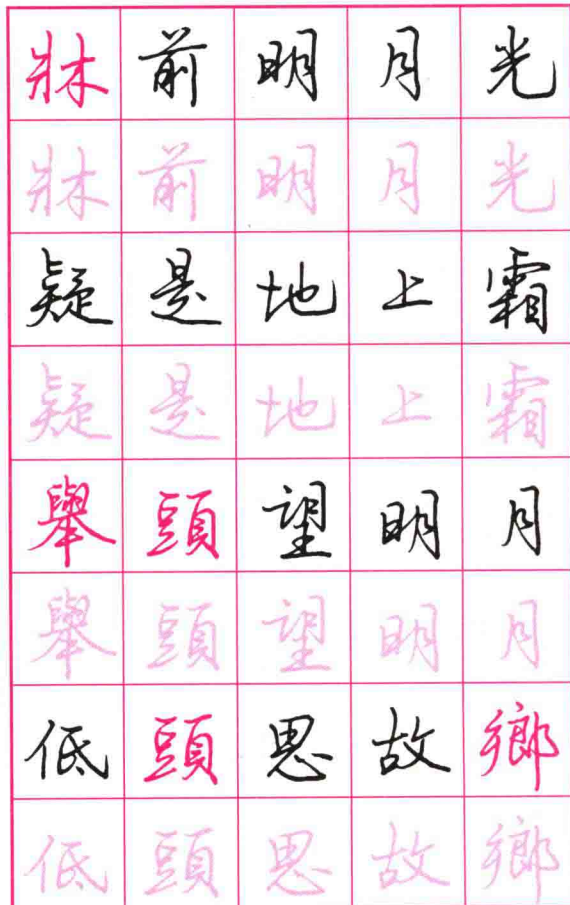 牀前明月光
牀前明月光
疑是地上霜
疑是地上霜
舉頭望明月
舉頭望明月
低頭思故鄉
低頭思故鄉